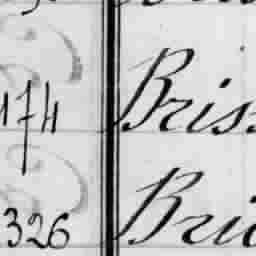 174 Bris
326 Bri